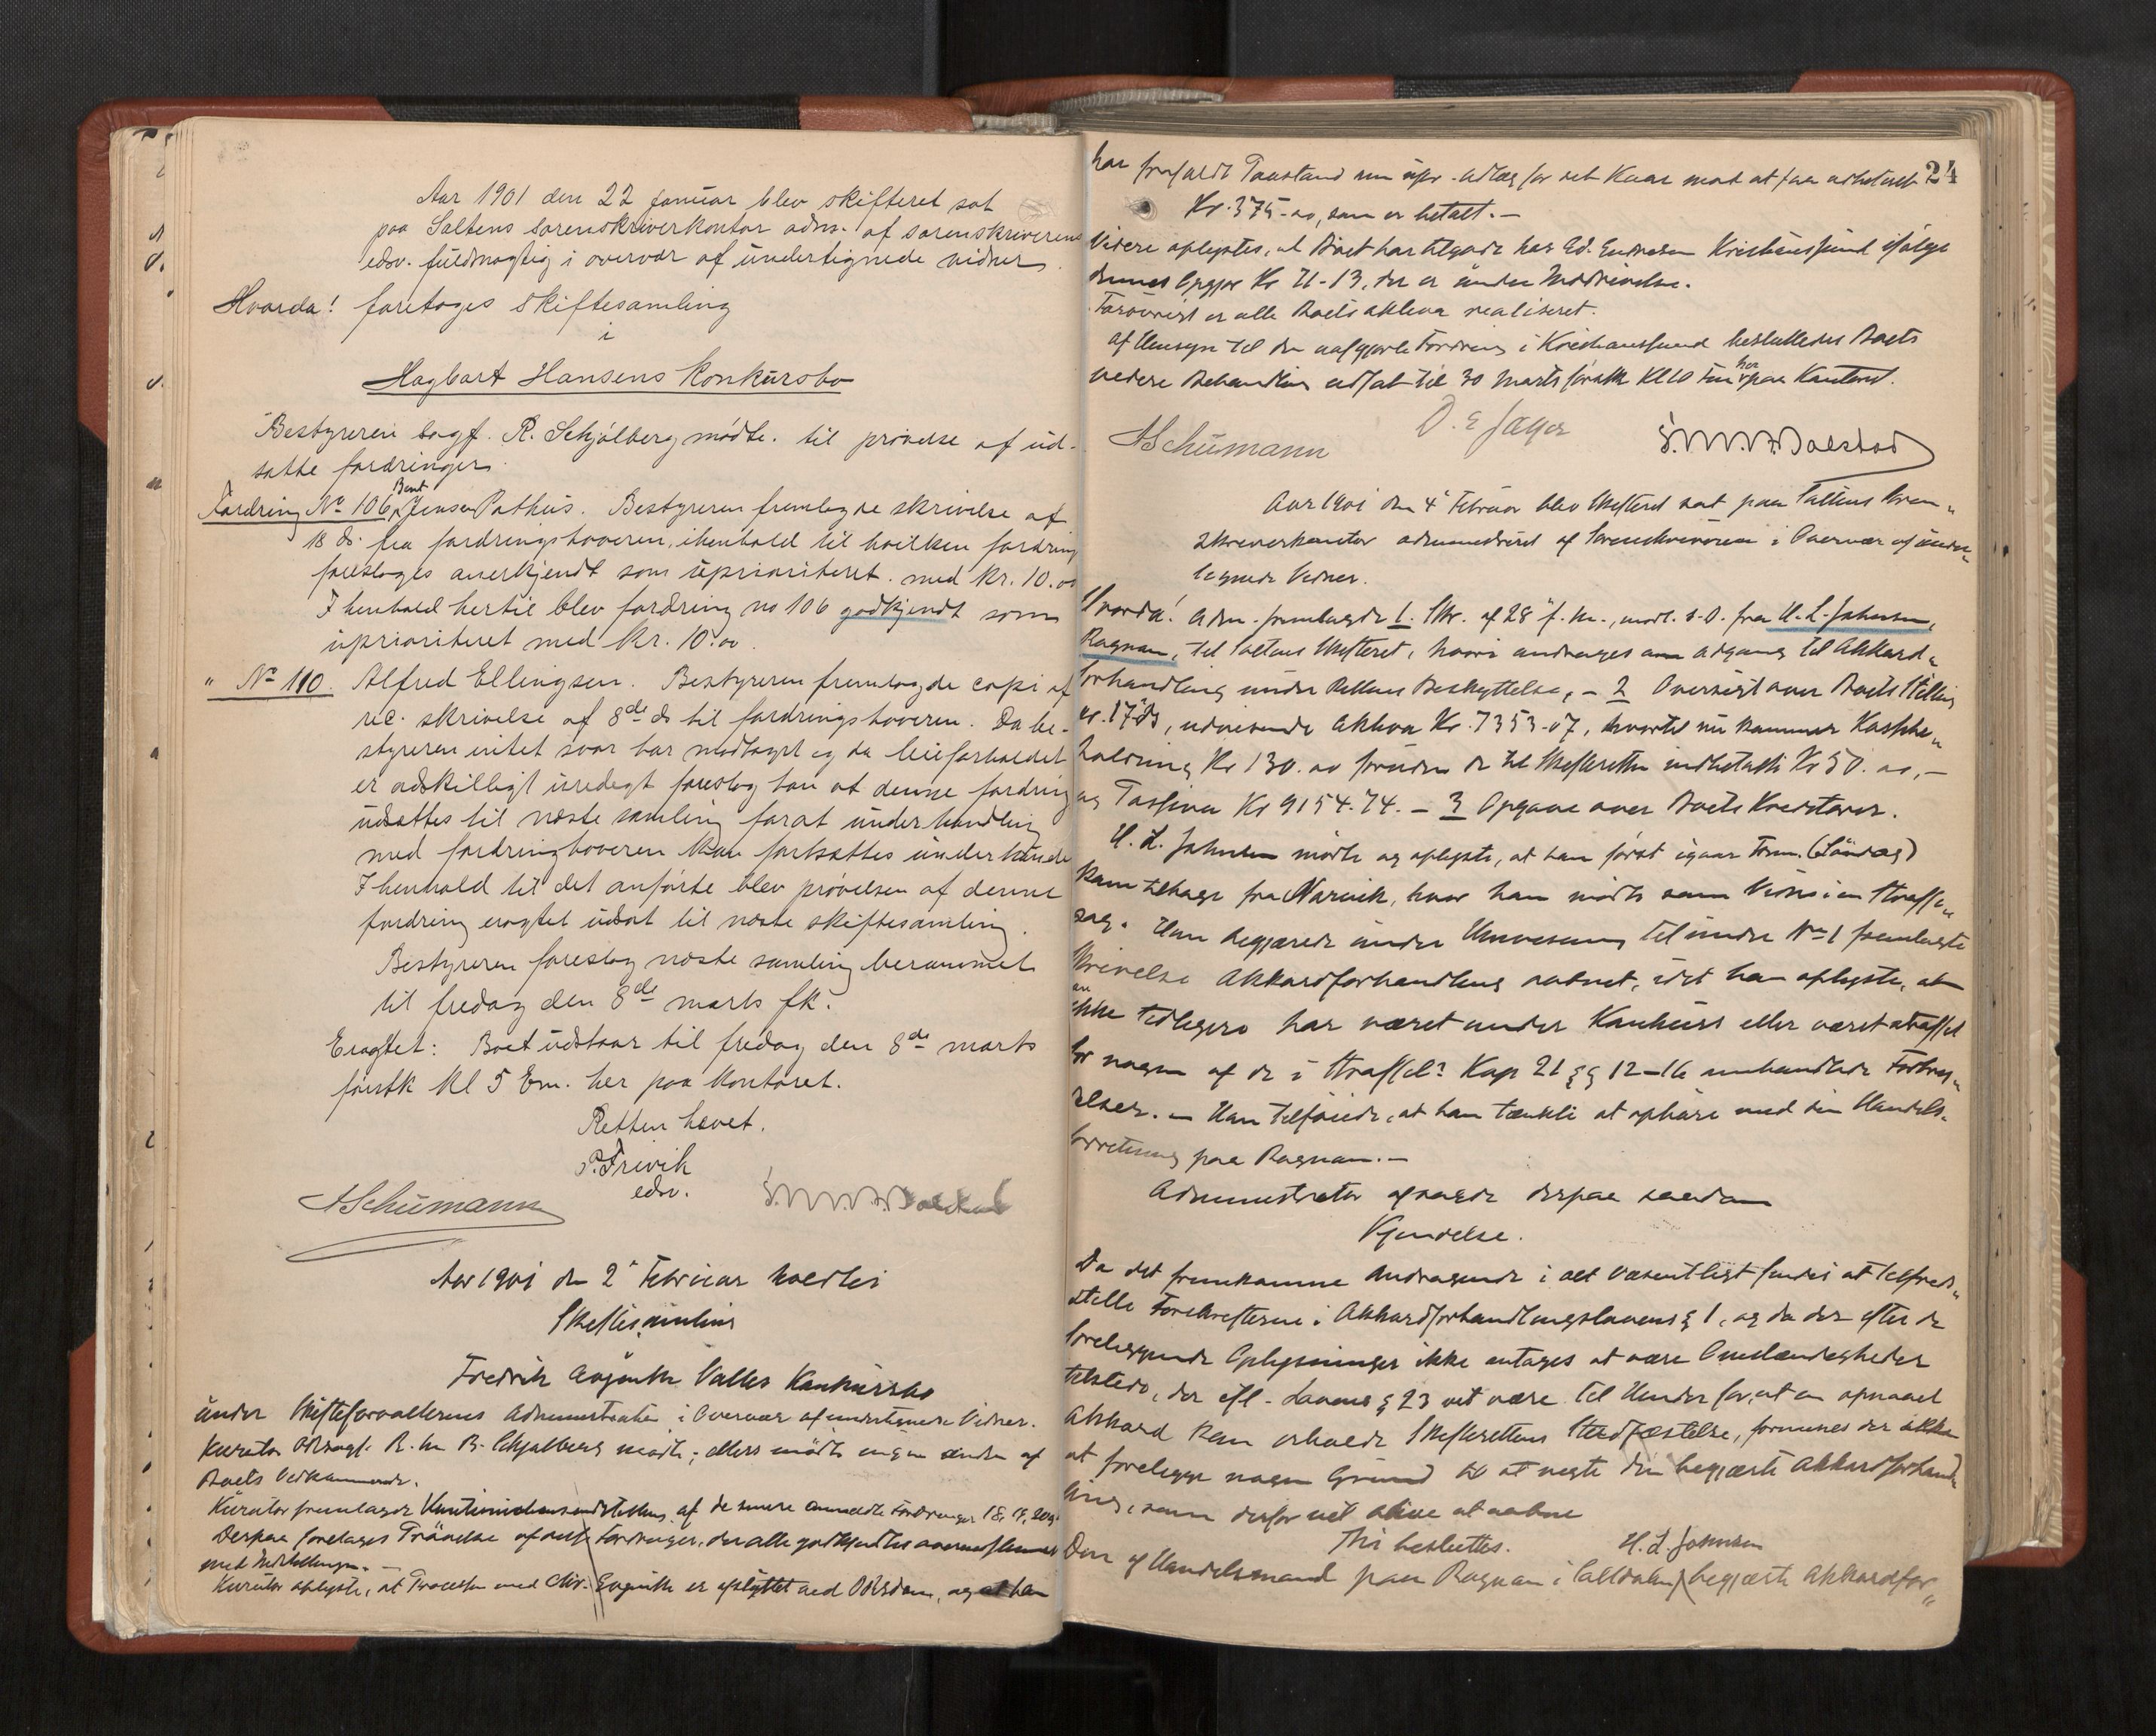 Aar 1901 den 22 januar blev skifteret sat
paa Saltens sorenskriverkontor adm. af sorenskriverens
edsv. fuldmægtig i overvær af undertegnede vidner.
Hvorda! foretoges skiftesamling
i
Hagbart Hansens Konkursbo
Bestyreren sagf. R. Schjølberg mødte. til prøvelse af ud-
satte fordringer.
Fordring No 106 Bent Jensen Pothus. Bestyreren fremlagde skrivelse af
18 ds. fra fordringshaveren, ihenhold til hvilken fordring
foresloges anerkjendt som uprioriteret med kr. 10.00
I henhold hertil blev fordring no 106 godkjendt som
uprioriteret med kr. 10.00.
" No 110. Alfred Ellingsen. Bestyreren fremlagde copi af
rec. skrivelse af 8de ds til fordringshaveren. Da be-
styreren intet svar har modtaget og da leieforholdet
er adskilligt uredegt foreslog han at denne fordring
udsattes til næste samling forat underhandling
med fordringshaveren kan fortsættes underhånden
I henhold til det anførte blev prøvelsen af denne
fordring eragtet udsat til næste skiftesamling.
Bestyreren foreslog næste samling berammet
til fredag den 8de marts fk.
Eragtet: Boet udstaar til fredag den 8de marts
førstk kl 5 Em. her paa kontoret.
Retten hævet.
P. Trivik
edsv.
ASchumann
Aar 1901 den 2 Februar holdtes
Skiftesamling
Fredrik Valles Konkursbo
under Skifteforvalterens Administration i Overvær af undertegnede Vidner.
Kurator R. Schjølberg mødte; ellers mødte ingen anden af
Boets Vedkommende.
Kurator fremlagde af de senere anmeldte Fordringer 18, 19, 20
Derpaa foretages Prøvelse af disse Fordringer, der alle godkjendtes
med Indstillingen. —
Kurator oplyste, at Processen med er afsluttet ved og at han
24
har frafaldt Paastand om for det Kaar mod at faa udbetalt
Kr. 375-00, som er betalt. —
Videre oplystes, at Boet har tilgode hos Ed. Kristiansund ifølge
dennes Opgjør Kr 21-13, der er under Inddrivelse.
Forøvrigt er alle Boets aktiva realiseret.
af Hensyn til den uafgjorte Fordring i Kristiansund besluttedes Boets
videre Behandling udsat til 30 Marts førstk Kl 10 Fm her paa Kontoret.
ASchumann
O. E Jæger
Aar 1901 den 4 Februar blev Skifteret sat paa Saltens Soren„
skriverkontor administreret af Sorenskriveren i Overvær af under„
tegnede Vidner.
Hvorda! Adm. fremlagde 1. Skr. af 28 f. M., modt. s.D. fra H. L. Johnsen,
Rognan, til Saltens Skifteret, hvori andrages om Adgang til Akkord„
forhandling under Rettens Beskyttelse, — 2 Oversigt over Boets Stilling
pr. 17 ds, udvisende Aktiva Kr. 7353-07, hvortil nu kommer Kassebe„
holdning Kr 130.00 foruden de til Skifteretten indbetalte Kr 50.00, —
og Passiva Kr 9154.74. — 3 Opgave over Boets Kreditorer.
H. L. Johnsen mødte og oplyste, at han først igaar Form. (Søndag)
kom tilbage fra Narvik, hvor han mødte som Vidne i en Straffe„
sag. Han begjærede under Henvisning til under No 1 fremlagte
Skrivelse Akkordforhandling aabnet, idet han oplyste, at
han ikke tidligere har været under Konkurs eller været straffet
for nogen af de i Straffel. Kap 21 §§ 12-16 omhandlede Forbry„
delser. — Han tilføiede, at han tænkte at ophøre med sin Handels„
forretning paa Rognan. —
Administrator afsagde derpaa saadan
Kjendelse.
Da det fremkomne Andragende i alt Væsentligt findes at tilfreds„
stille Forskrifterne i Akkordforhandlingslovens § 1, og da der efter de
foreliggende Oplysninger ikke antages at være Omstændigheder
tilstede, der efl. Lovens § 23 vil være til Hinder for, at en opnaaet
Akkord kan erholde Skifterettens Stadfæstelse, formenes der ikke
at foreligge nogen Grund til at negte den begjærte Akkordforhand„
ling, som derfor vil blive at aabne
Thi besluttes:
H. L. Johnsen
Den af Handelsmand paa Rognan i Saltdalen begjærte Akkordfor„